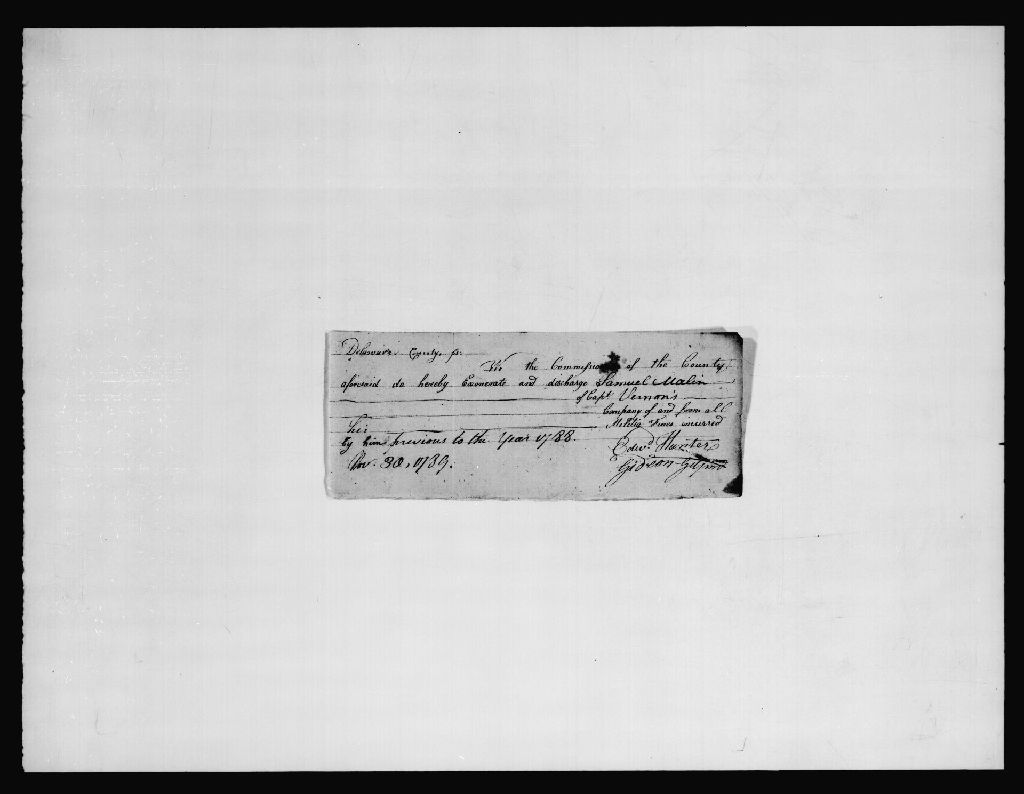 Delaware County, ss.
We the Commissioners of the County
aforesaid do hereby Exonerate and discharge Samuel Malin
of Capt Vernons
Company of and from all
his Militia Fines incurred
by him previous to the Year 1788.
Nov. 30, 1789. Edwd. Hunter
Gideon Gilpin